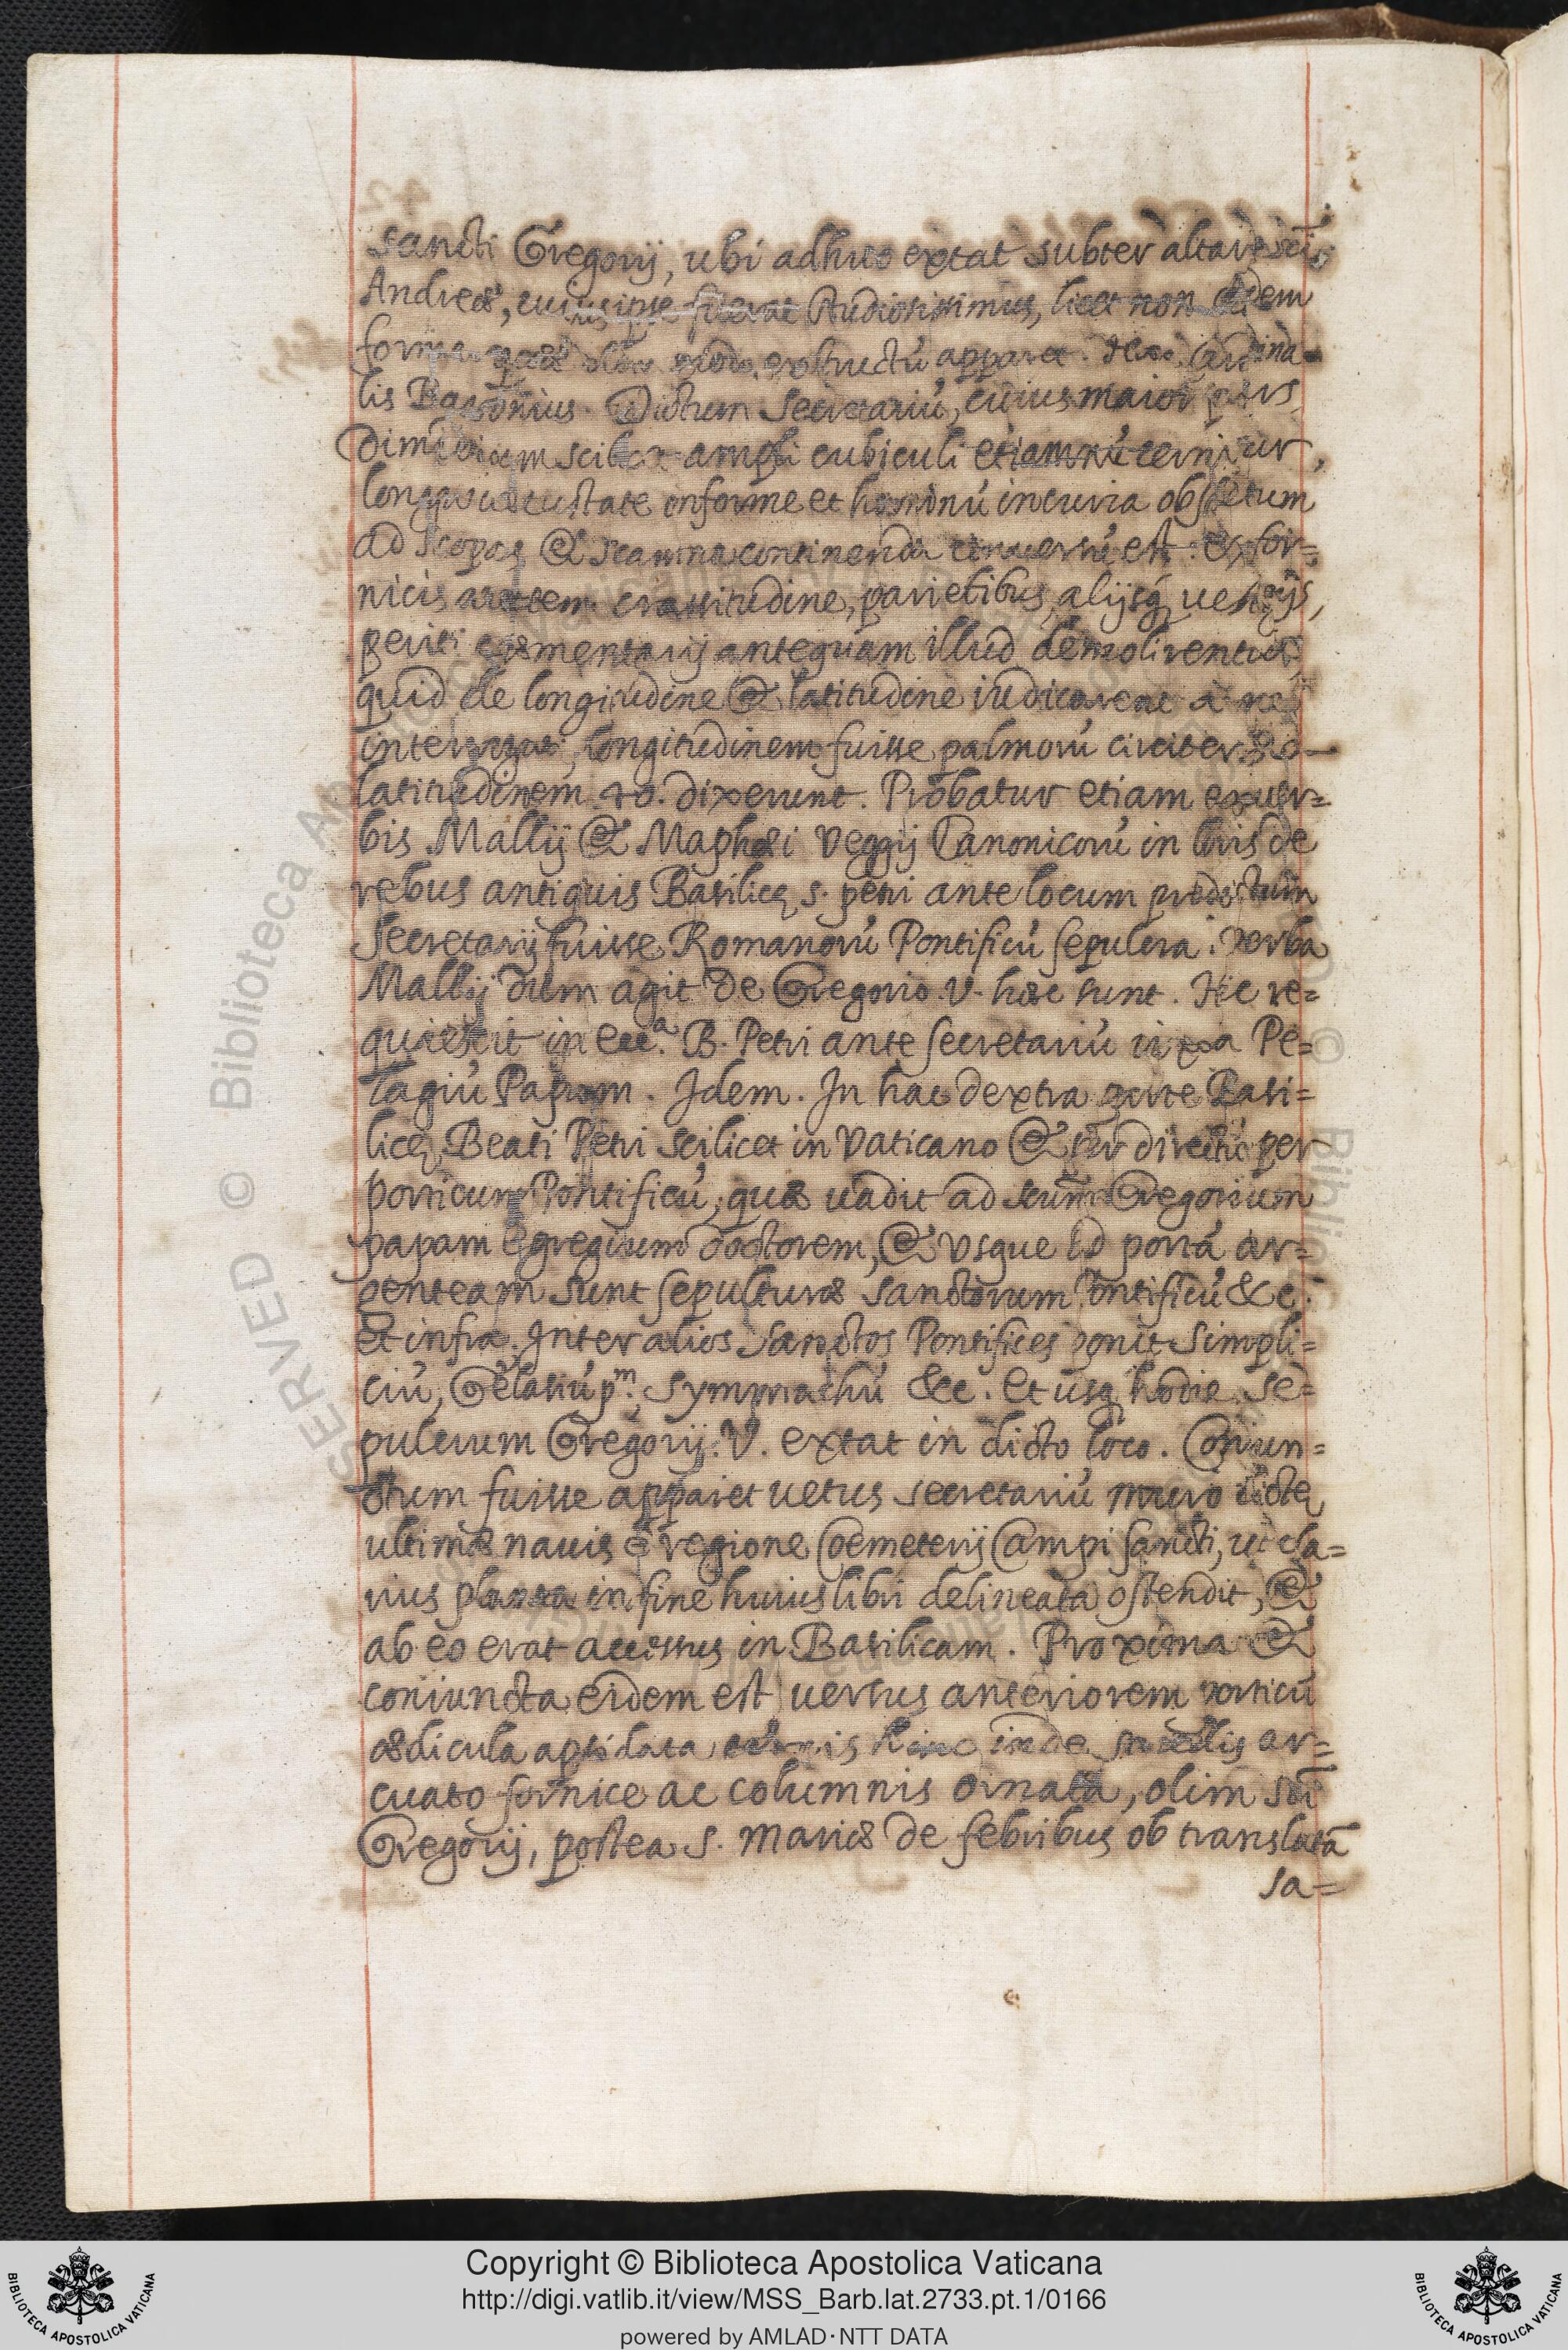 sancti Gregorij, ubi adhuc extat subter altare scĩ
Andreæ, cuius ipse fuerat studiosissimus, licet non eadem
forma, quæ olim modo, exstructũ apparet. Hæc Cardina=
lis Baronius. Dictum Secretariũ, cuius maior pars,
Dimidium scilicet ampli cubiculi etiamnũ cernitur,
longa uetustate informe et hominũ incuria obsoletum
ad scopas & scamna continenda conuersũ est: ex for=
nicis autem crassitudine, parietibus, alijsq; uestigijs,
periti cæmentarij antequam illud demolirentur
quid de longitudine & latitudine iudicarent a me
interrogati, longitudinem fuisse palmorũ circiter
latitudinem 40. dixerunt. Probatur etiam ex uer=
bis Mallij & Maphæi Veggij Canonicorũ in libris de
rebus antiquis Basilicę s. petri ante locum prædictum
Secretarij fuisse Romanorũ Pontificũ sepulcra. verba
Mallij dum agit de Gregorio V. hæc sunt. Hic re=
quiescit in ecc.ª B. Petri ante secretariũ iuxta Pe=
lagiũ Papam. Idem. In hac dextra parte Basi=
licę Beati Petri scilicet in Vaticano & per directũ per
porticum Pontificũ, quæ uadit ad scũm Gregorium
papam egregium doctorem, & vsque ad portã ar=
genteam sunt sepulturæ sanctorum Pontificũ &c.
et infra. Inter alios sanctos Pontifices ponit Simpli=
ciũ, Gelasiũ p.m, Symmachũ &c. Et usq; hodie se=
pulcrum Gregorij. V. extat in dicto loco. Coniun=
ctum fuisse apparet uetus secretariũ muro dictę
ultimæ nauis e regione Coemeterij Campi sancti, ut cla=
rius planta in fine huius libri delineata ostendit, &
ab eo erat accessus in Basilicam. Proxima &
coniuncta eidem est uersus anteriorem porticũ
ædicula apsidata hinc inde ar=
cuato fornice ac columnis ornata, olim scĩ
Gregorij, postea S. Mariæ de febribus ob translatã
sa=
Copyright © Biblioteca Apostolica Vaticana
http://digi.vatlib.it/view/MSS_Barb.lat.2733.pt.1/0166
powered by AMLAD·NTT DATA
BIBLIOTECA APOSTOLICA VATICANA
BIBLIOTECA APOSTOLICA VATICANA